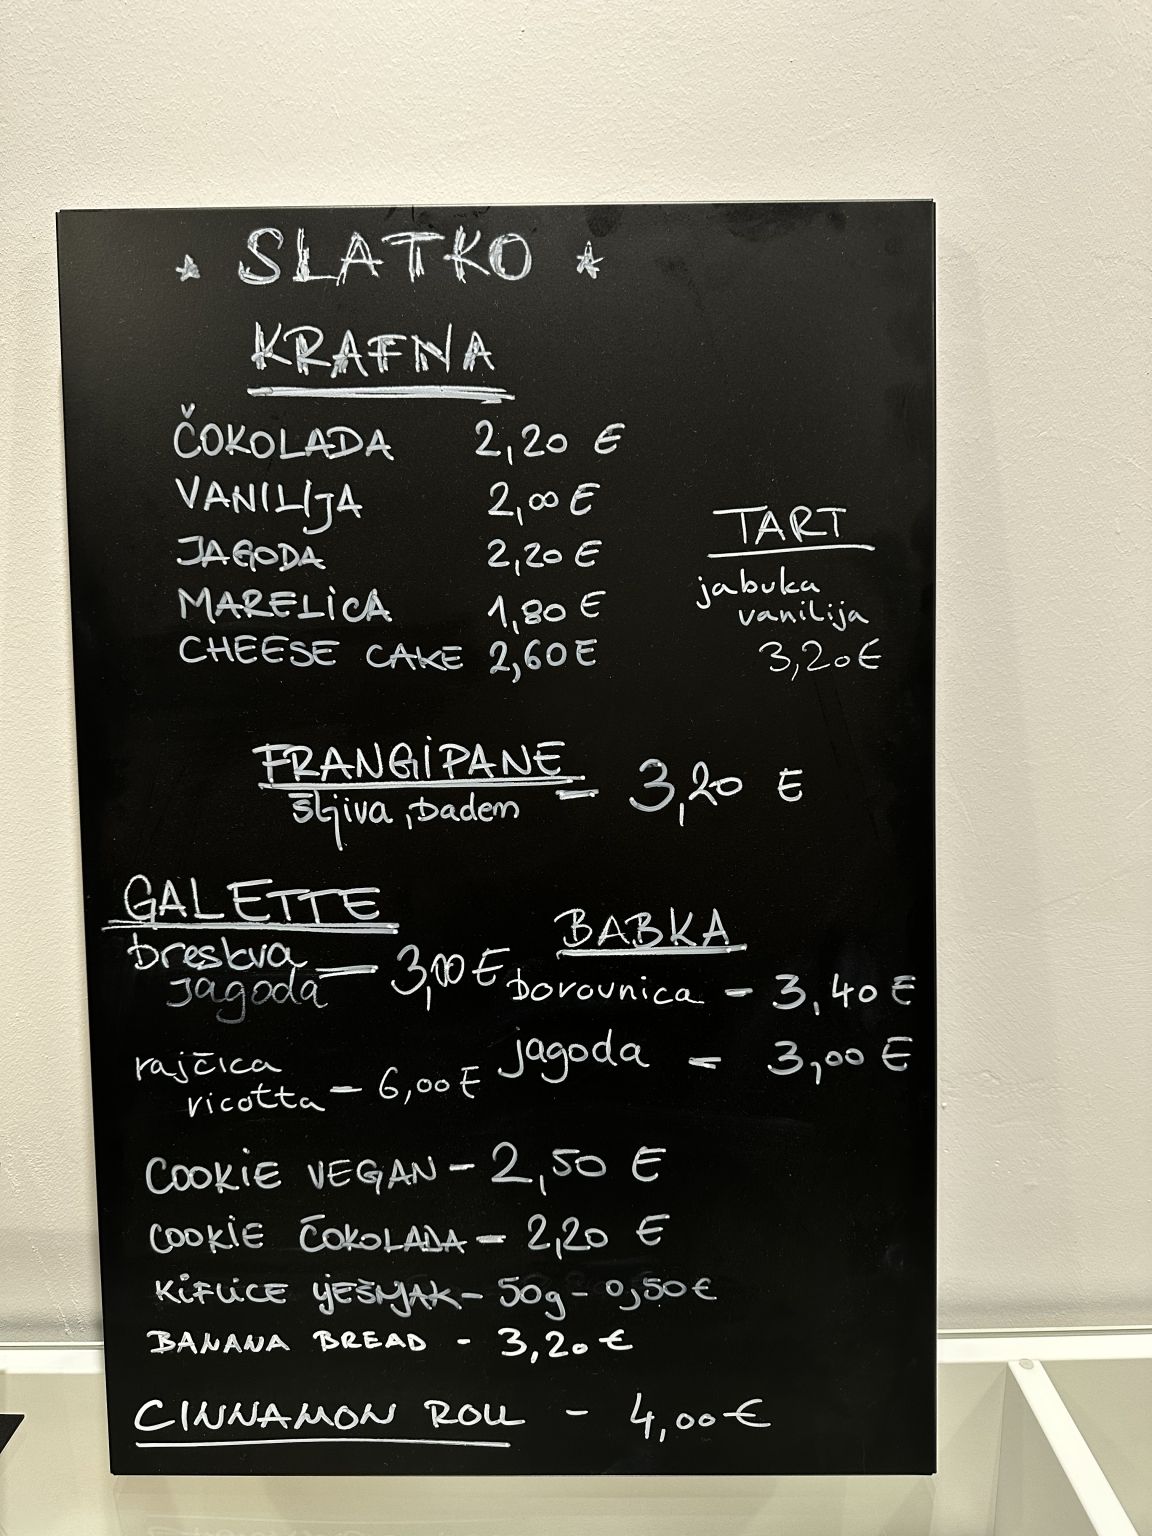 SLATKO
KRAFNA
ČOKOLADA 2,20 €
VANILIJA 2,00 €
JAGODA 2,20 €
MARELICA 1,80 €
CHEESE CAKE 2,60 €
TART
jabuka
vanilija
3,20 €
FRANGIPANE – 3,20 €
šljiva, badem
GALETTE
breskva
jagoda – 3,00 €
rajčica
ricotta – 6,00 €
BABKA
borovnica – 3,40 €
jagoda – 3,00 €
COOKIE VEGAN – 2,50 €
COOKIE ČOKOLADA – 2,20 €
KIFLICE LJEŠNJAK – 50g – 0,50 €
BANANA BREAD - 3,20 €
CINNAMON ROLL - 4,00 €